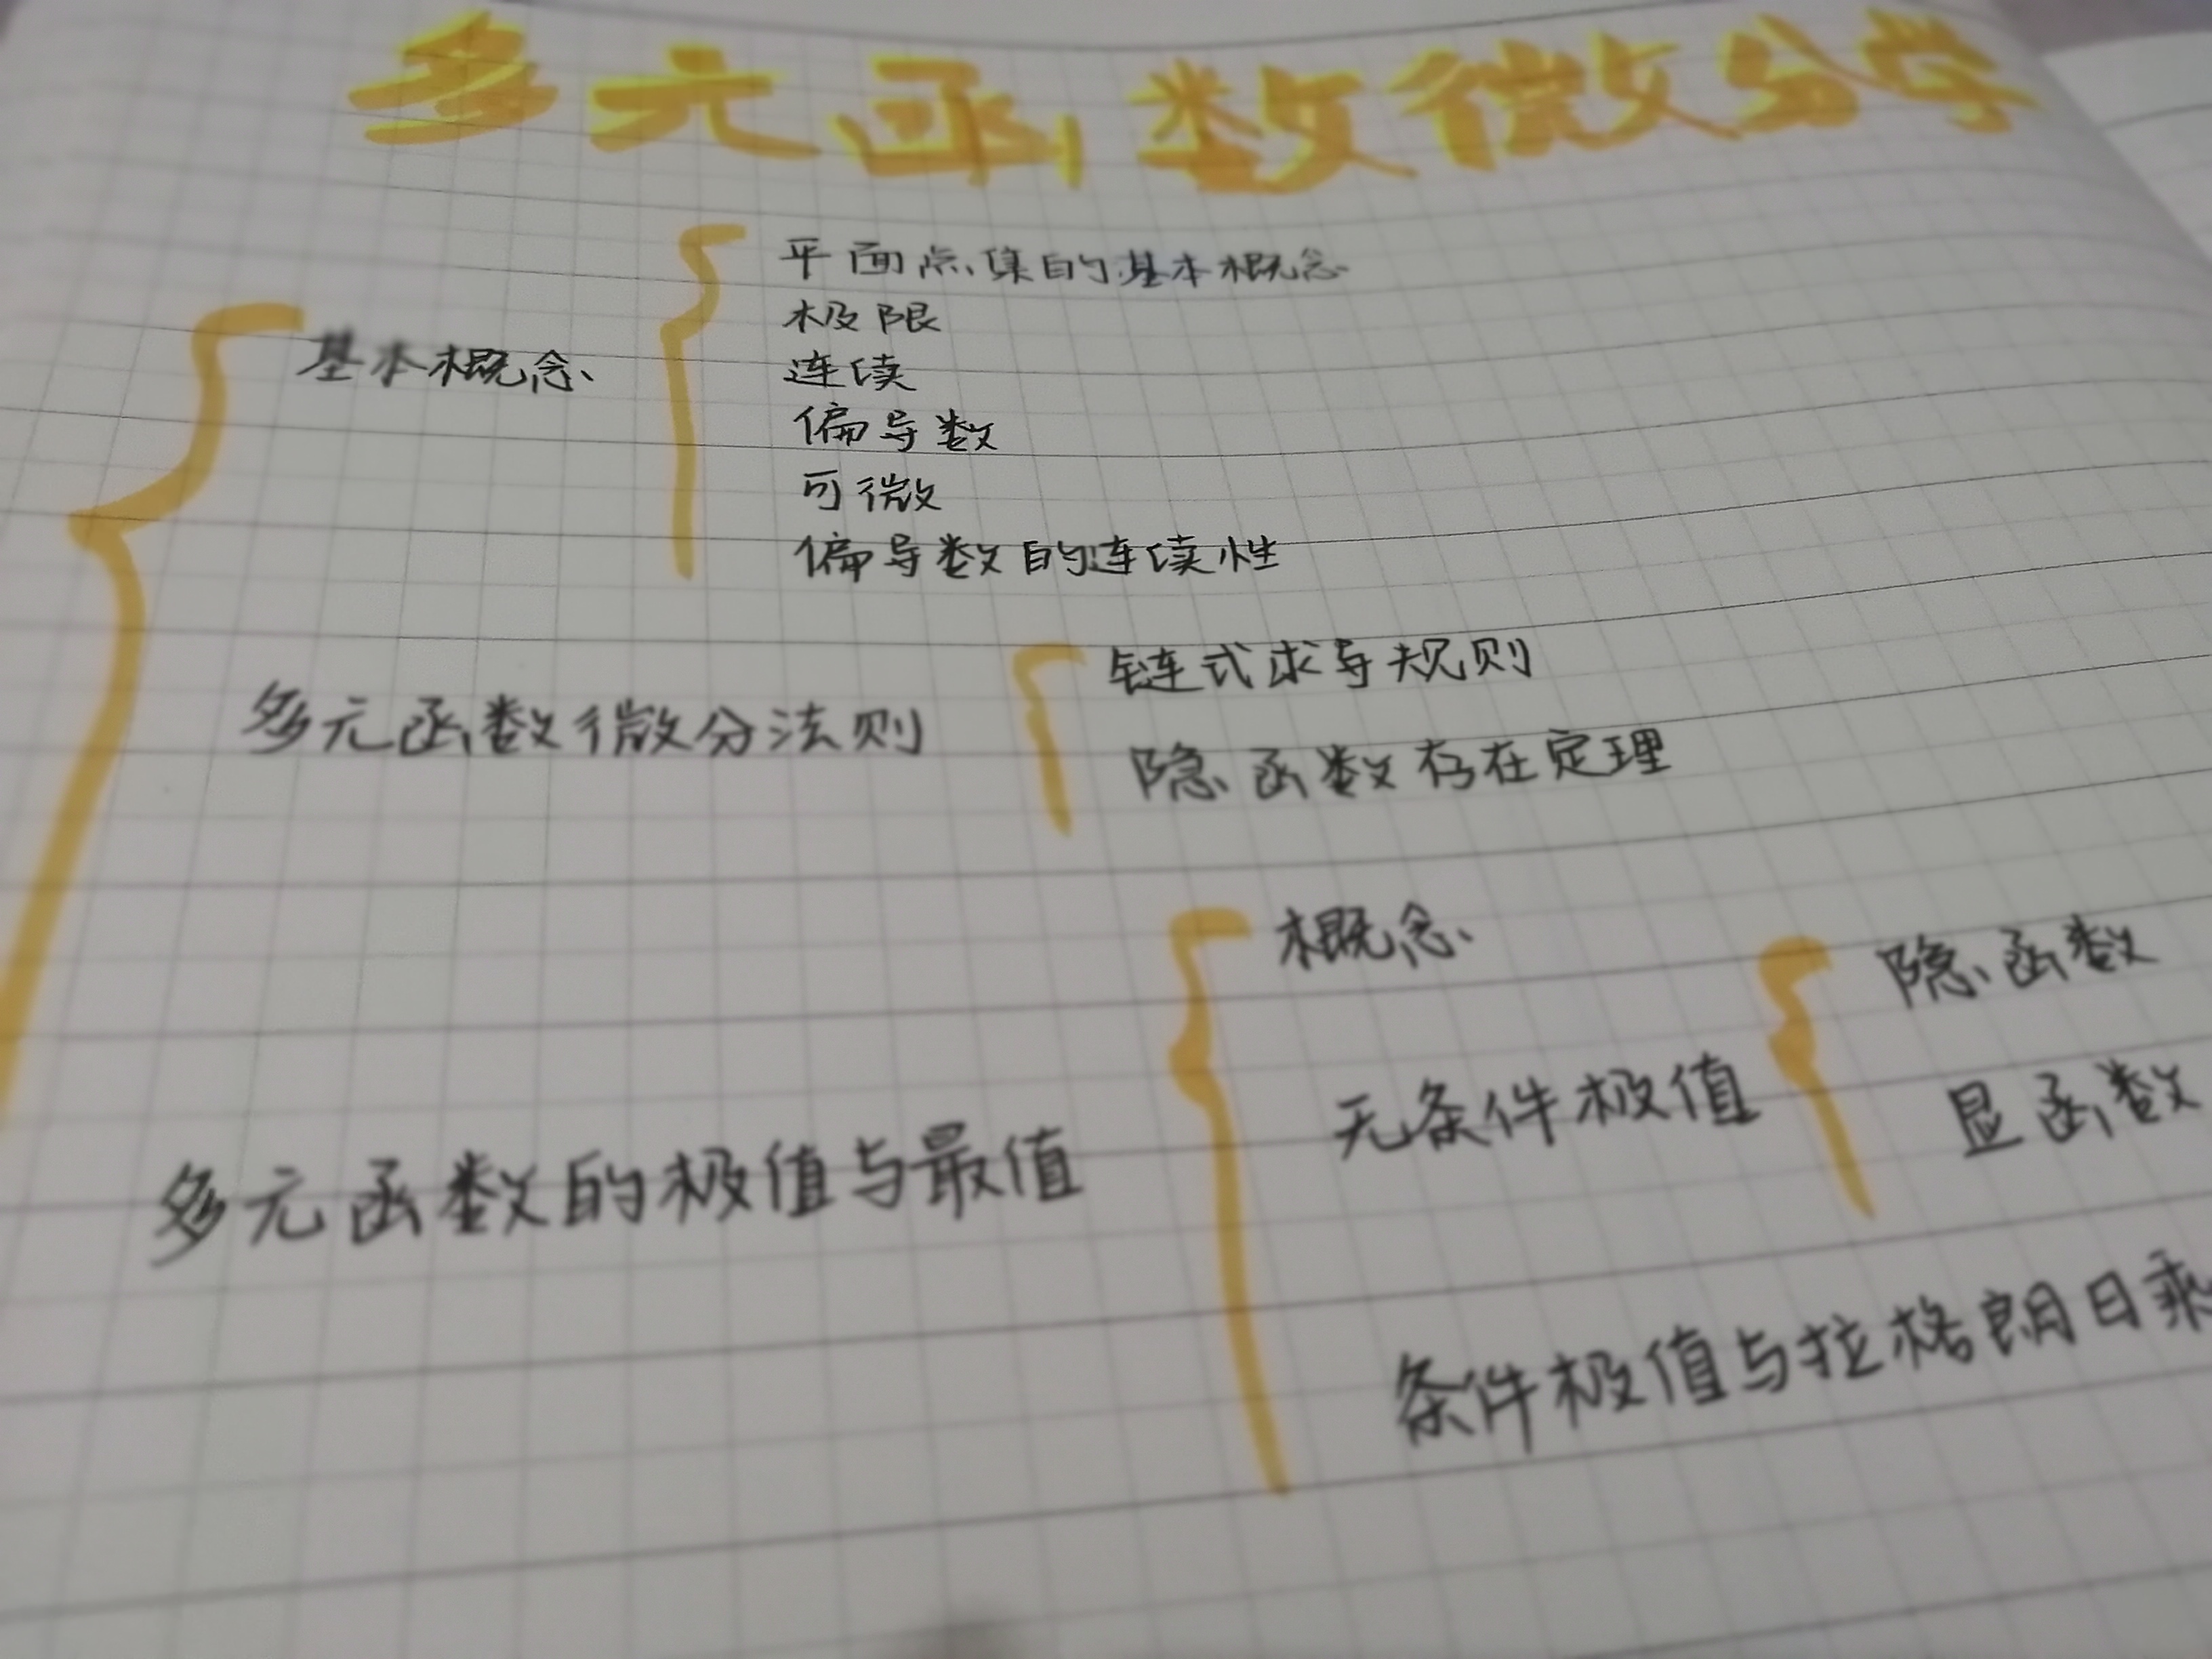 多元函数微分学
平面点集的基本概念
极限
基本概念
连续
偏导数
可微
偏导数的连续性
链式求导规则
多元函数微分法则
隐函数存在定理
概念
隐函数
无条件极值
显函数
多元函数的极值与最值
条件极值与拉格朗日乘